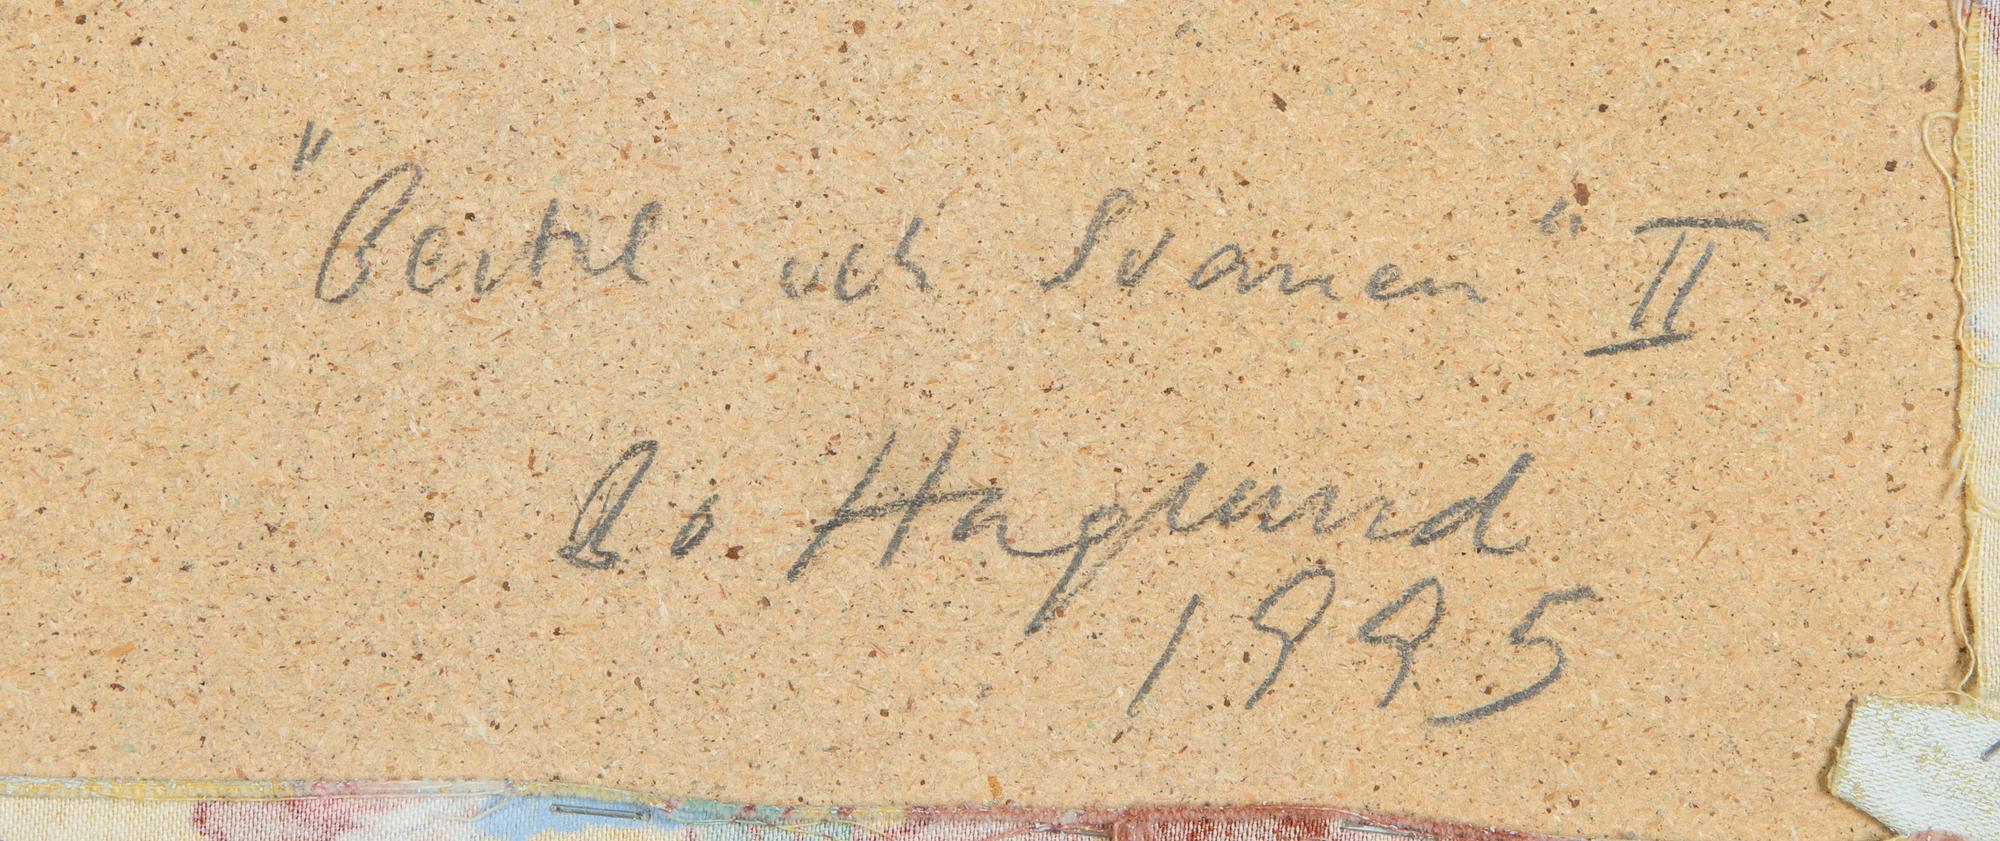 "Bertil och Svanen" II
Bo. Haglund
1995